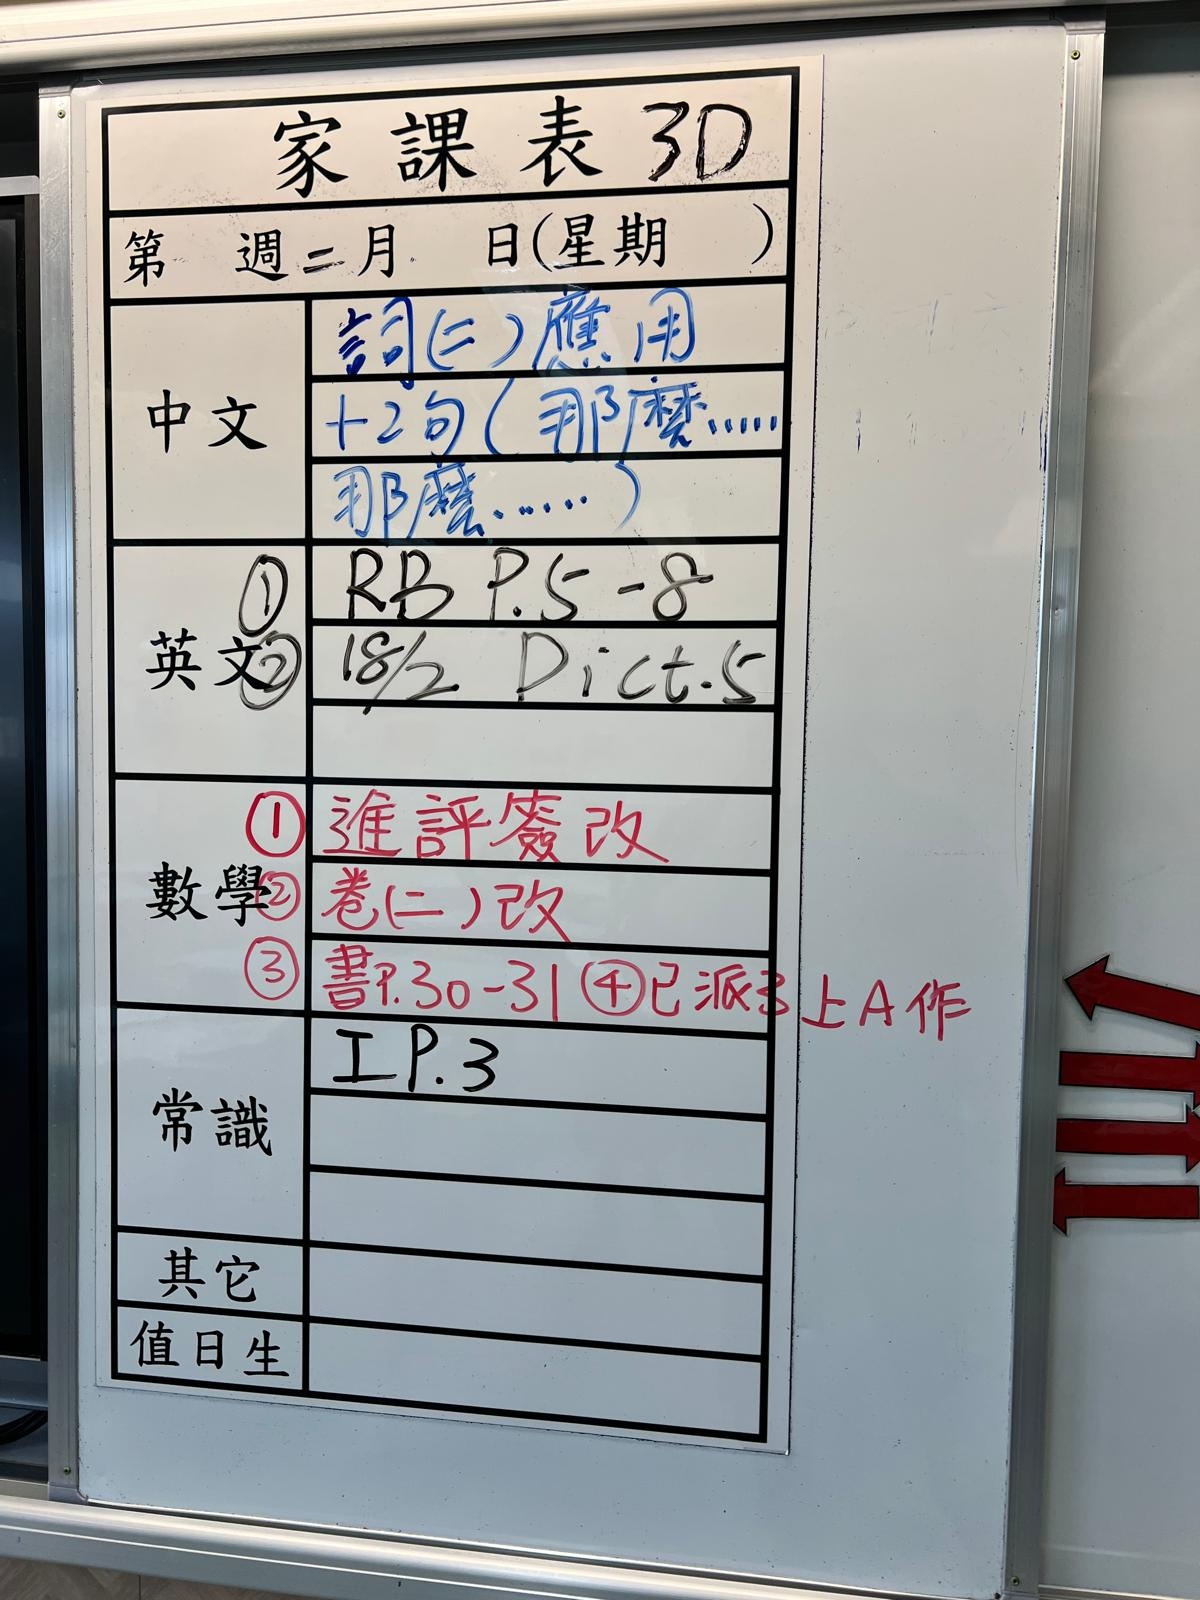 家課表 3D
第 週二月 日(星期 )
中文
詞(二)應用
+2句(那麼……
那麼……)
英文
① RB P.5-8
② 18/2 Dict.5
數學
① 進評簽改
② 卷(二)改
③ 書P.30-31 ④已派3上A作
常識
I P.3
其它
值日生